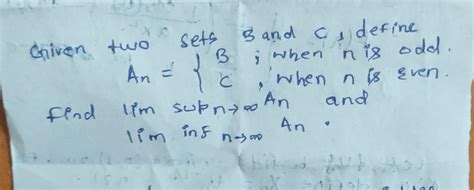 Given two sets B and C, define
An = { B ; when n is odd.
C , when n is even.
find lim sup n→∞ An and
lim inf n→∞ An .